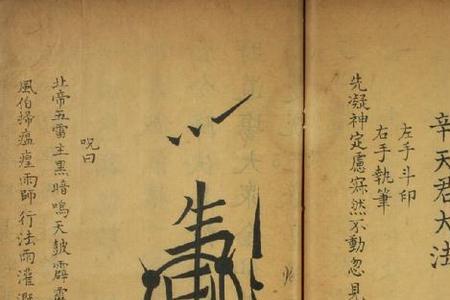 辛天君大法
左手斗印
右手執筆
先凝神定慮寂然不動忽見
呪曰
北帝五雷主黑暗鳴天鼓霹雷
風伯掃瘟瘴雨師行法雨灌